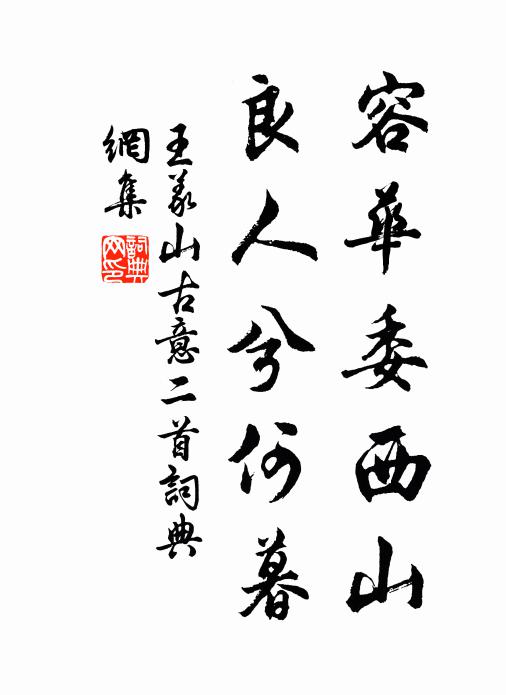 容華委西山
良人兮何暮
王义山古意二首詞典
網集
詞典网印